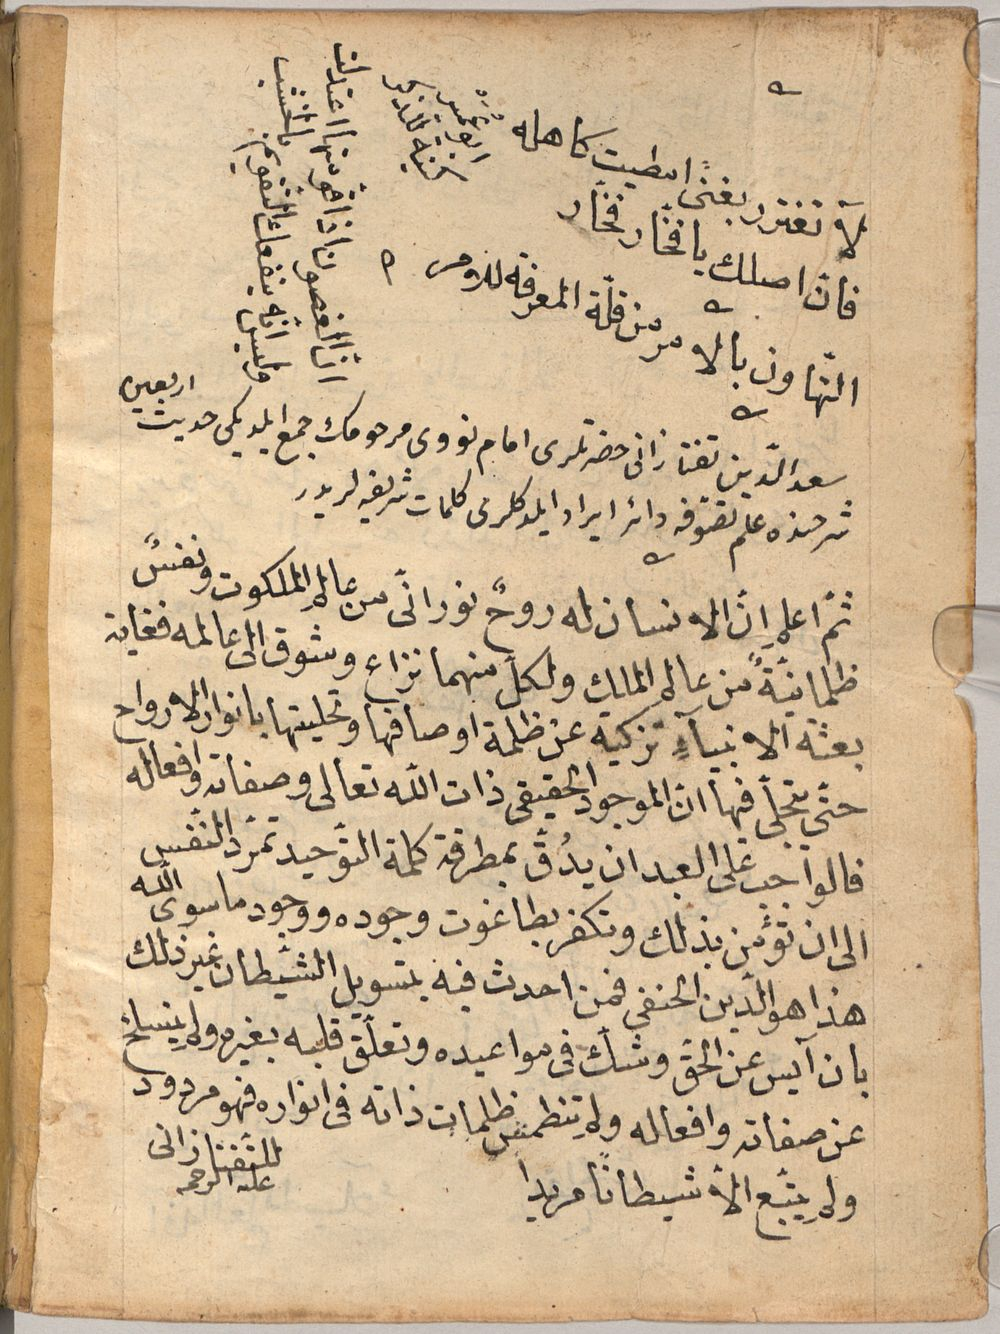 لا تغترر بغنًى امطيت كاهله
فانّ اصلك يا فخّار فخّار
التهاون بالامر من قلّة المعرفة للاومر
ابو عمير
كنية للذكر
انّ الغصون اذا قومتها اعتدلت
وليس انّه ينفعك التقويم بالخشب
سعد الدّين تفتازانى حضرتلرى امام نووى مرحومك جمع ايلديكى حديث اربعين
شرحنده علم تصوّفه دائر ايراد ايلدكلرى كلمات شريفه لريدر
ثمّ اعلم انّ الانسان له روحٌ نورانّى من عالم الملكوت ونفسٌ
ظلمانيّةٌ من عالم الملك ولكلّ منهما نزاع وشوق الى عالمه فغاية
بعثة الانبيآءِ تزكية عن ظلمة اوصافها وتحليتها بانوار الارواح
حتّى يتجلّى فيها انّ الموجود الحقيقى ذات اللّه تعالى وصفاته وافعاله
فالواجب على العبد ان يدُقّ بمطرقة كلمة التوّحيد تمرّد النّفس
الى ان تؤمن بذلك وتكفر بطاغوت وجوده ووجود ما سوى اللّه
هذا هو الدّين الحنفى فمن احدث فيه بتسويل الشّيطان غير ذلك
بان آيس عن الحقّ وشكّ فى مواعيده وتعلّق قلبه بغيره ولم ينسلخ
عن صفاته وافعاله ولم تنطمس ظلمات ذاته فى انواره فهو مردود
ولم يتّبع الاّ شيطانًا مريدا
للتّفتازانى
عليه الرحمه